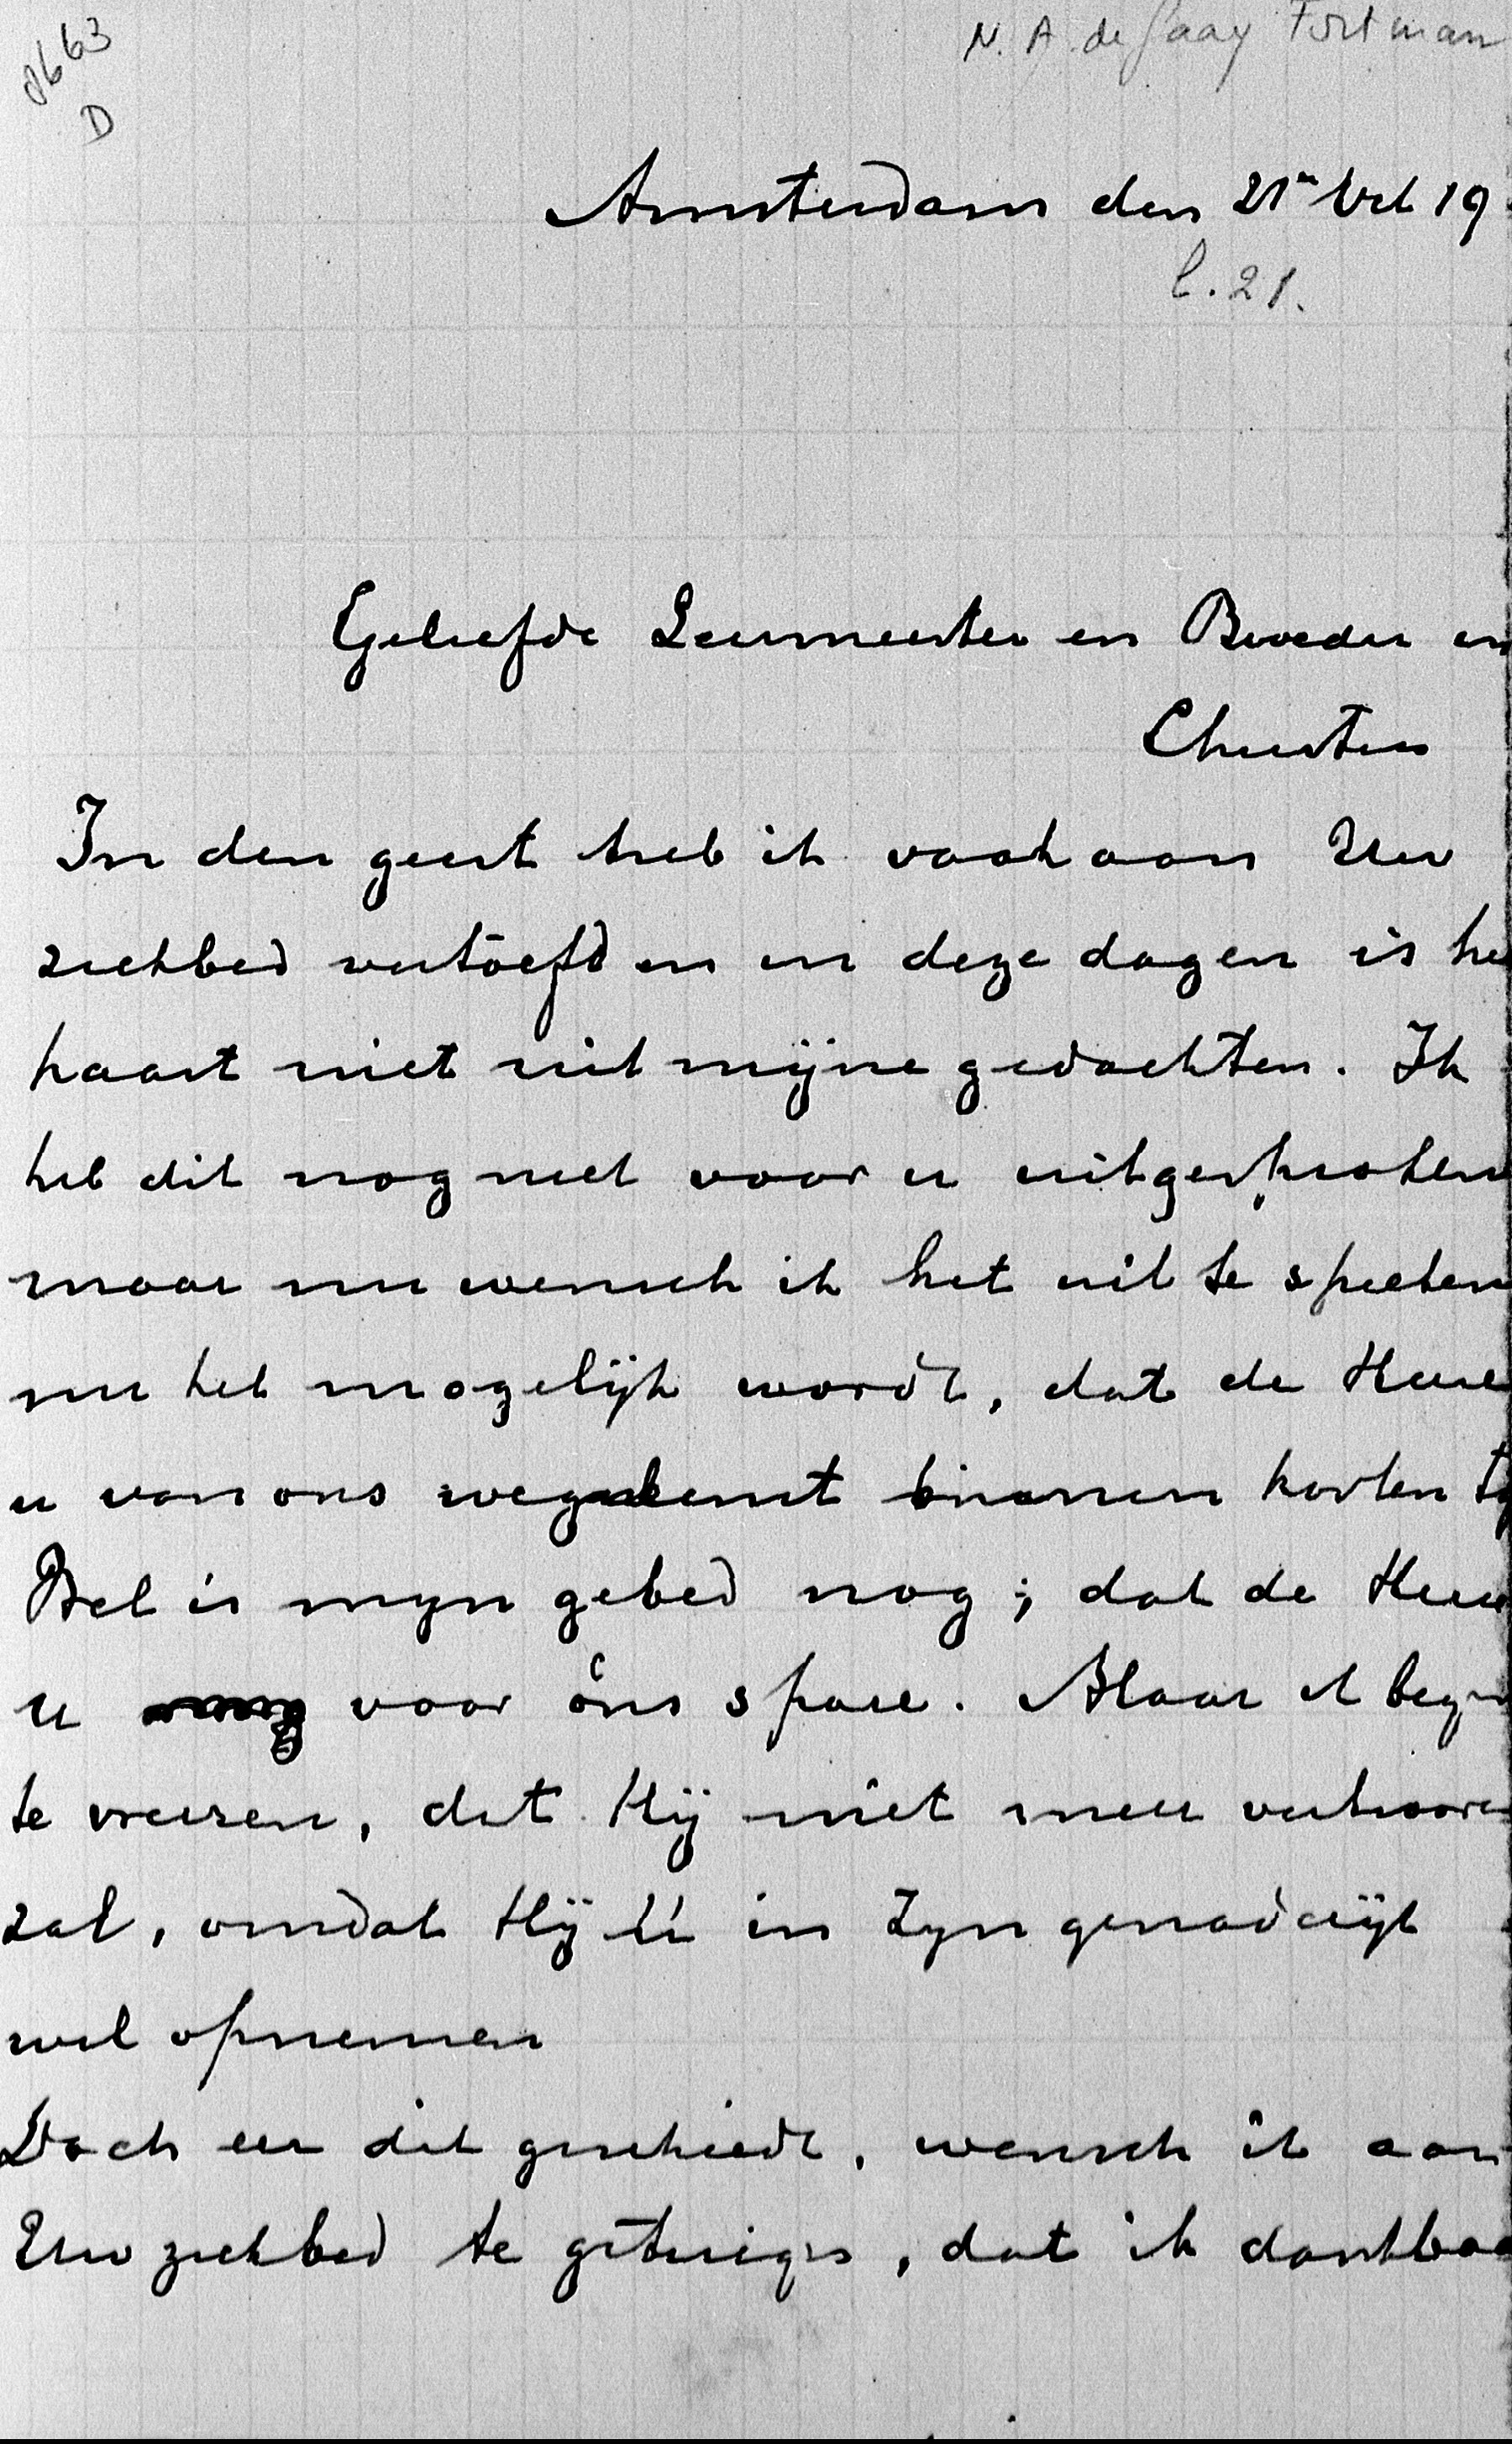 8663
D
N. A. de Gaay Fortman
Amsterdam den 21n Oct 19
l. 21.
Geliefde Leermeester en Broeder in
Christus
In den geest heb ik vaak aan Uw
ziekbed vertoefd en in deze dagen is he
haast niet uit mijne gedachten. Ik
heb dit nog niet voor u uitgesproken
maar nu wensch ik het uit te spreken
nu het mogelijk wordt, dat de Heere
u van ons wegneemt binnen korten t
Het is mijn gebed nog; dat de Heere
u voor óns spare. Maar ik begin
te vreezen, dat Hij niet meer verhooren
zal, omdat Hij Ú in Zijn genaderijk
wil opnemen
Doch eer dit geschiedt, wensch ik aan
Uw ziekbed te getuigen, dat ik dankbaa